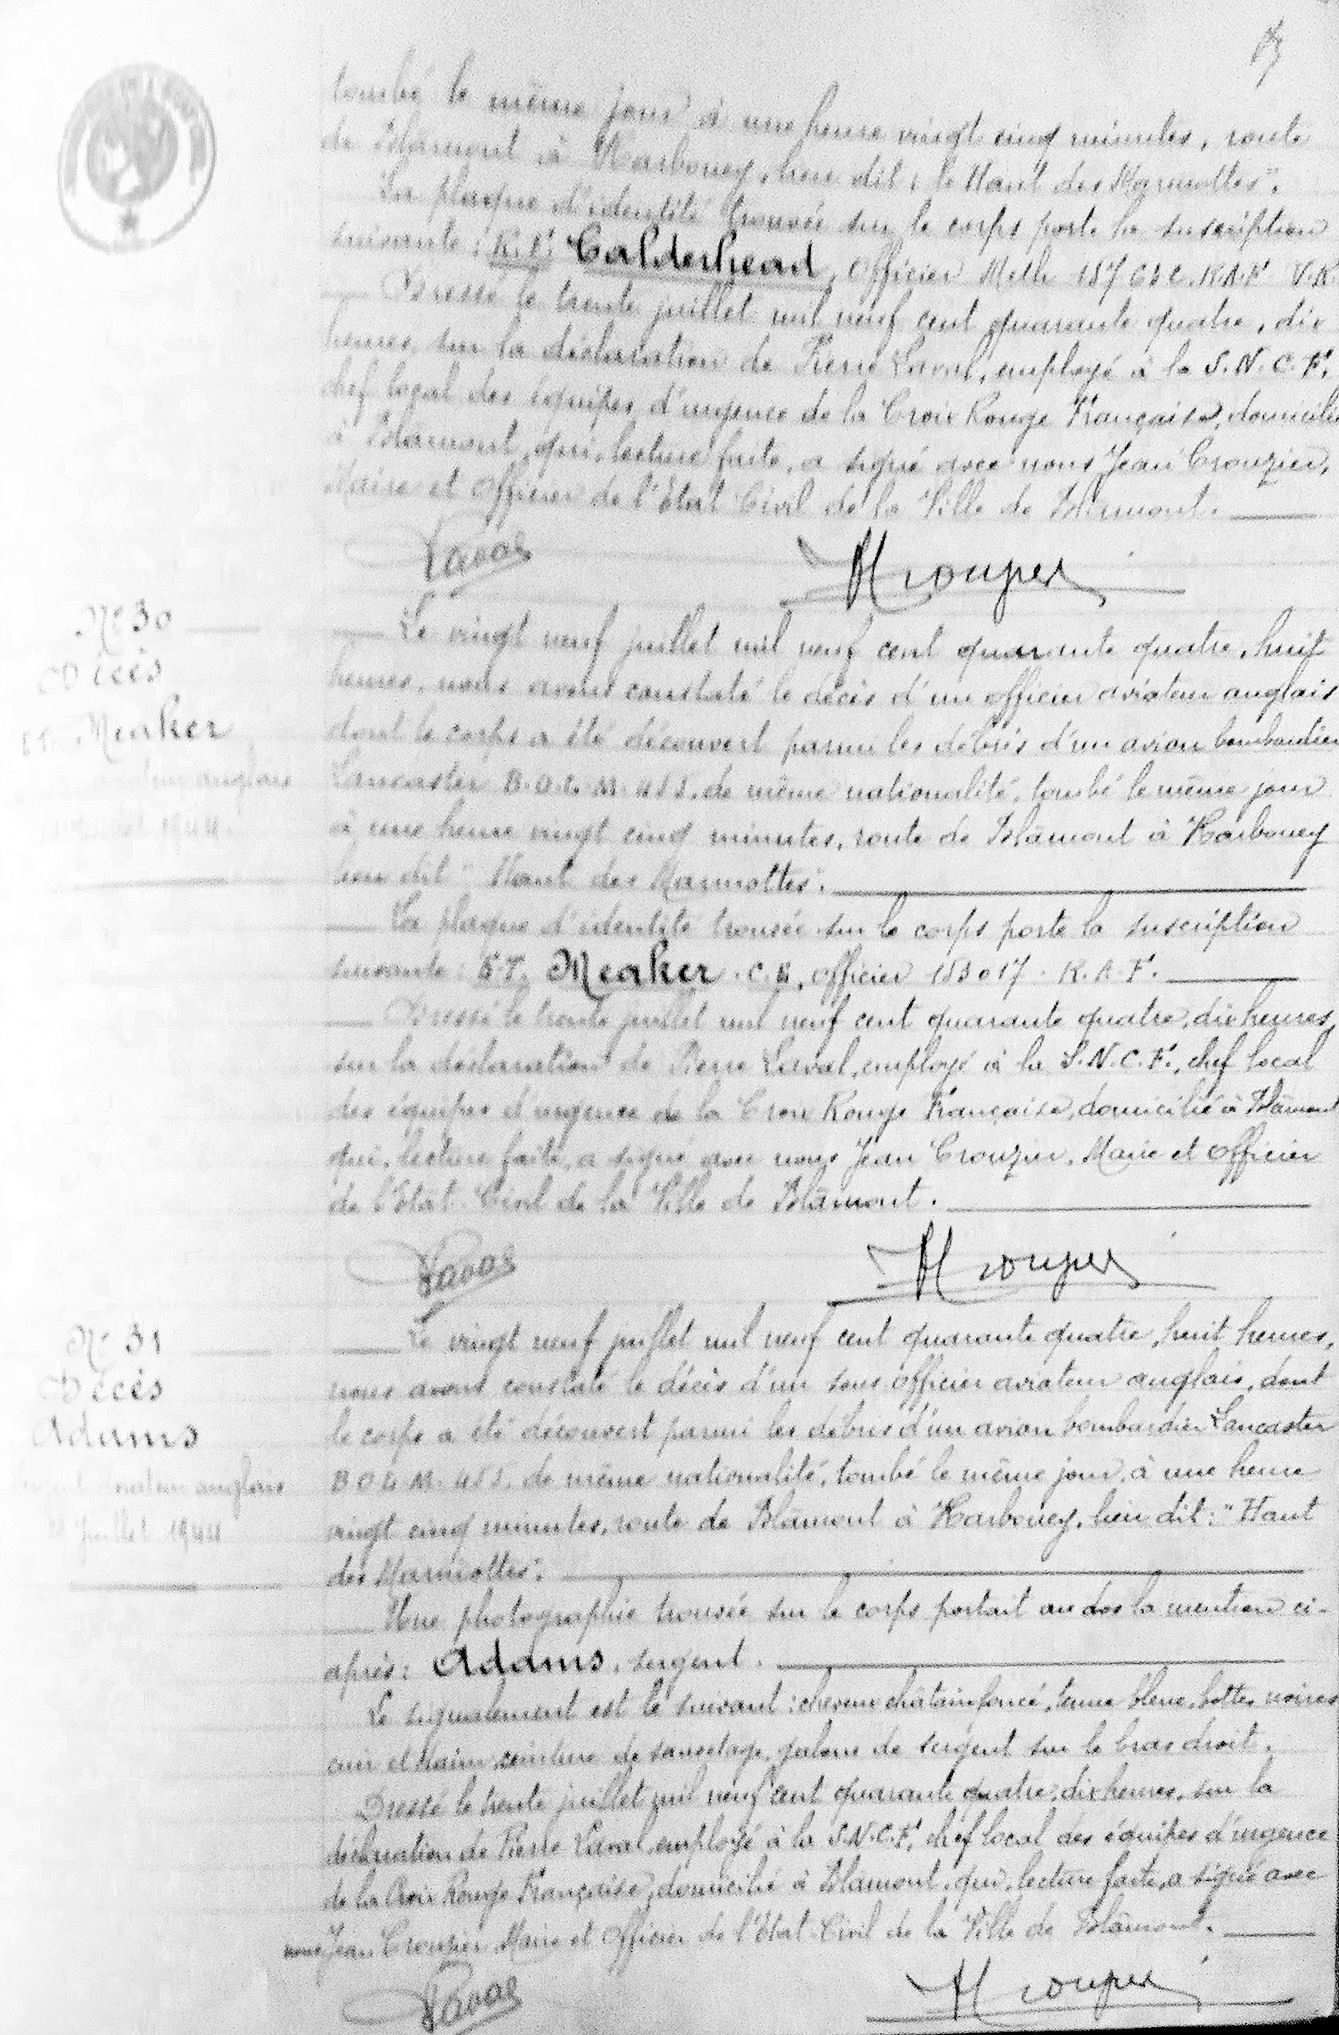 tombé le même jour à une heure vingt cinq minutes, route
de Blâmont à Harbouey, lieu dit : le Haut des Marmottes".
La plaque d'identité trouvée sur le corps porte la suscription
suivante : R.F. Calderhead, Officier Mtle 157 632. R.A.F V.R
Dressé le trente juillet mil neuf cent quarante quatre, dix
heures, sur la déclaration de Pierre Laval, employé à la S.N.C.F.
chef local des équipes d'urgence de la Croix Rouge Française, domicilié
à Blamont, qui, lecture faite, a signé avec nous Jean Crouzier,
Maire et Officier de l'Etat Civil de la Ville de Blamont.
Laval
Crouzier
N° 30
Décès
Meaker
anglais
1944
Le vingt neuf juillet mil neuf cent quarante quatre, huit
heures, nous avons constaté le décès d'un officier aviateur anglais
dont le corps a été découvert parmi les débris d'un avion bombardier
Lancaster de même nationalité, tombé le même jour
à une heure vingt cinq minutes, route de Blâmont à Harbouey
lieu dit " Haut des Marmottes".
La plaque d'identité trouvée sur le corps porte la suscription
suivante : Meaker . officier 153017 . R.A.F.
Dressé le trente juillet mil neuf cent quarante quatre, dix heures,
sur la déclaration de Pierre Laval, employé à la S.N.C.F., chef local
des équipes d'urgence de la Croix Rouge Française, domicilié à Blâmont
qui, lecture faite, a signé avec nous Jean Crouzier, Maire et Officier
de l'Etat-Civil de la Ville de Blâmont.
Laval
Crouzier
N° 31
Décès
Adams
aviateur anglais
juillet 1944
Le vingt neuf juillet mil neuf cent quarante quatre, huit heures,
nous avons constaté le décès d'un sous officier aviateur anglais, dont
le corps a été découvert parmi les débris d'un avion bombardier Lancaster
de même nationalité, tombé le même jour, à une heure
vingt cinq minutes, route de Blâmont à Harbouey, lieu dit : " Haut
des Marmottes".
Une photographie trouvée sur le corps portait au dos la mention ci-
après : Adams, sergent.
Le signalement est le suivant : cheveux châtain foncé, tenue bleue, bottes noires
cuir et daim, ceinture de sauvetage, galons de sergent sur le bras droit.
Dressé le trente juillet mil neuf cent quarante quatre, dix heures, sur la
déclaration de Pierre Laval, employé à la S.N.C.F. chef local des équipes d'urgence
de la Croix Rouge Française, domicilié à Blâmont, qui, lecture faite, a signé avec
nous Jean Crouzier Maire et Officier de l'Etat-Civil de la Ville de Blâmont.
Laval
Crouzier